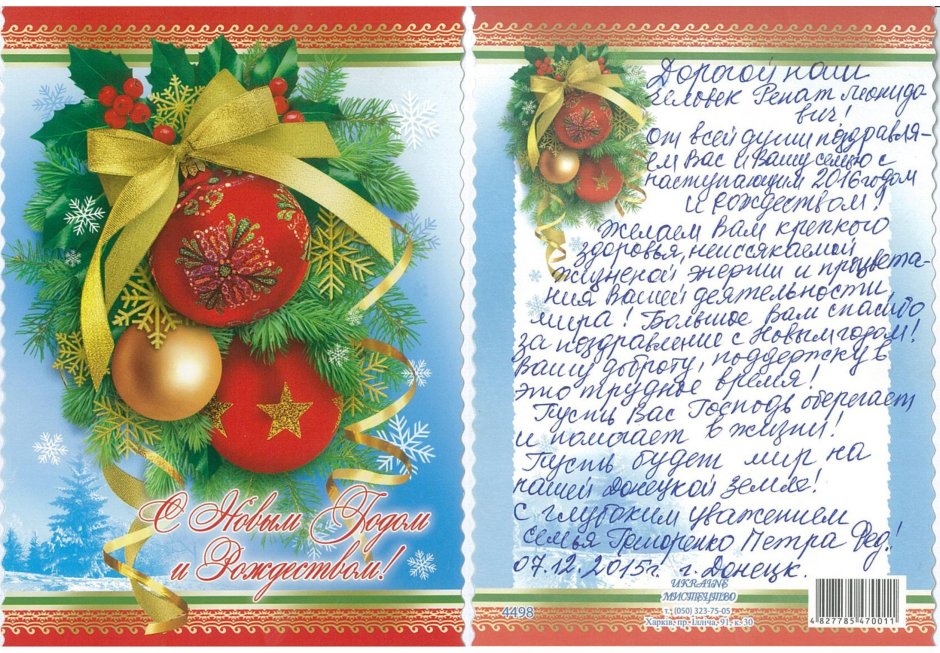 С Новым Годом
и Рождеством!
Дорогой наш
человек Ренат Леонидо
вич!
От всей души поздравля-
ем Вас и Вашу семью с
наступающим 2016 годом
и рождеством!
Желаем Вам крепкого
здоровья, неиссякаемой
жизненой энергии и процвета-
ния Вашей деятельности,
мира! Большое Вам спасибо
за поздравление с Новым годом!
Вашу доброту, поддержку в
это трудное время!
Пусть Вас Господь оберегает
и помогает в жизни!
Пусть будет мир на
нашей Донецкой Земле!
С глубоким уважением
семья Петра Фед.!
07.12.2015г. г. Донецк.
UKRAINE
МИСТЕЦТВО
4498
т. (050) 323-75-05
Харків, пр. Ілліча, 91, к. 30
4 827785 470011